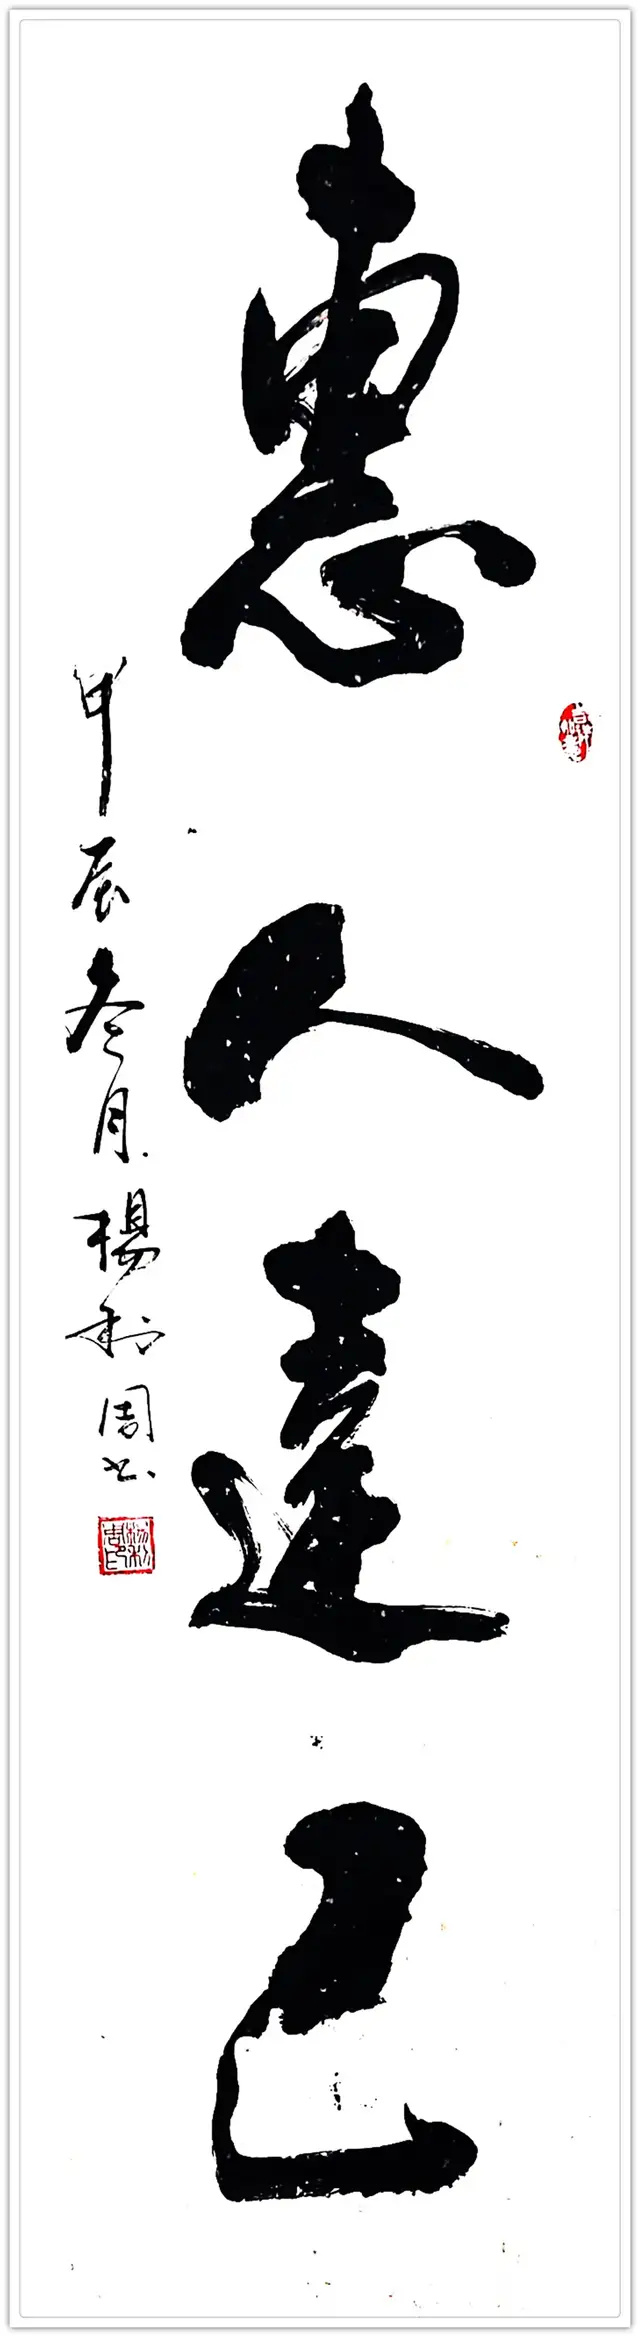 惠人達己
甲辰冬月楊利周书